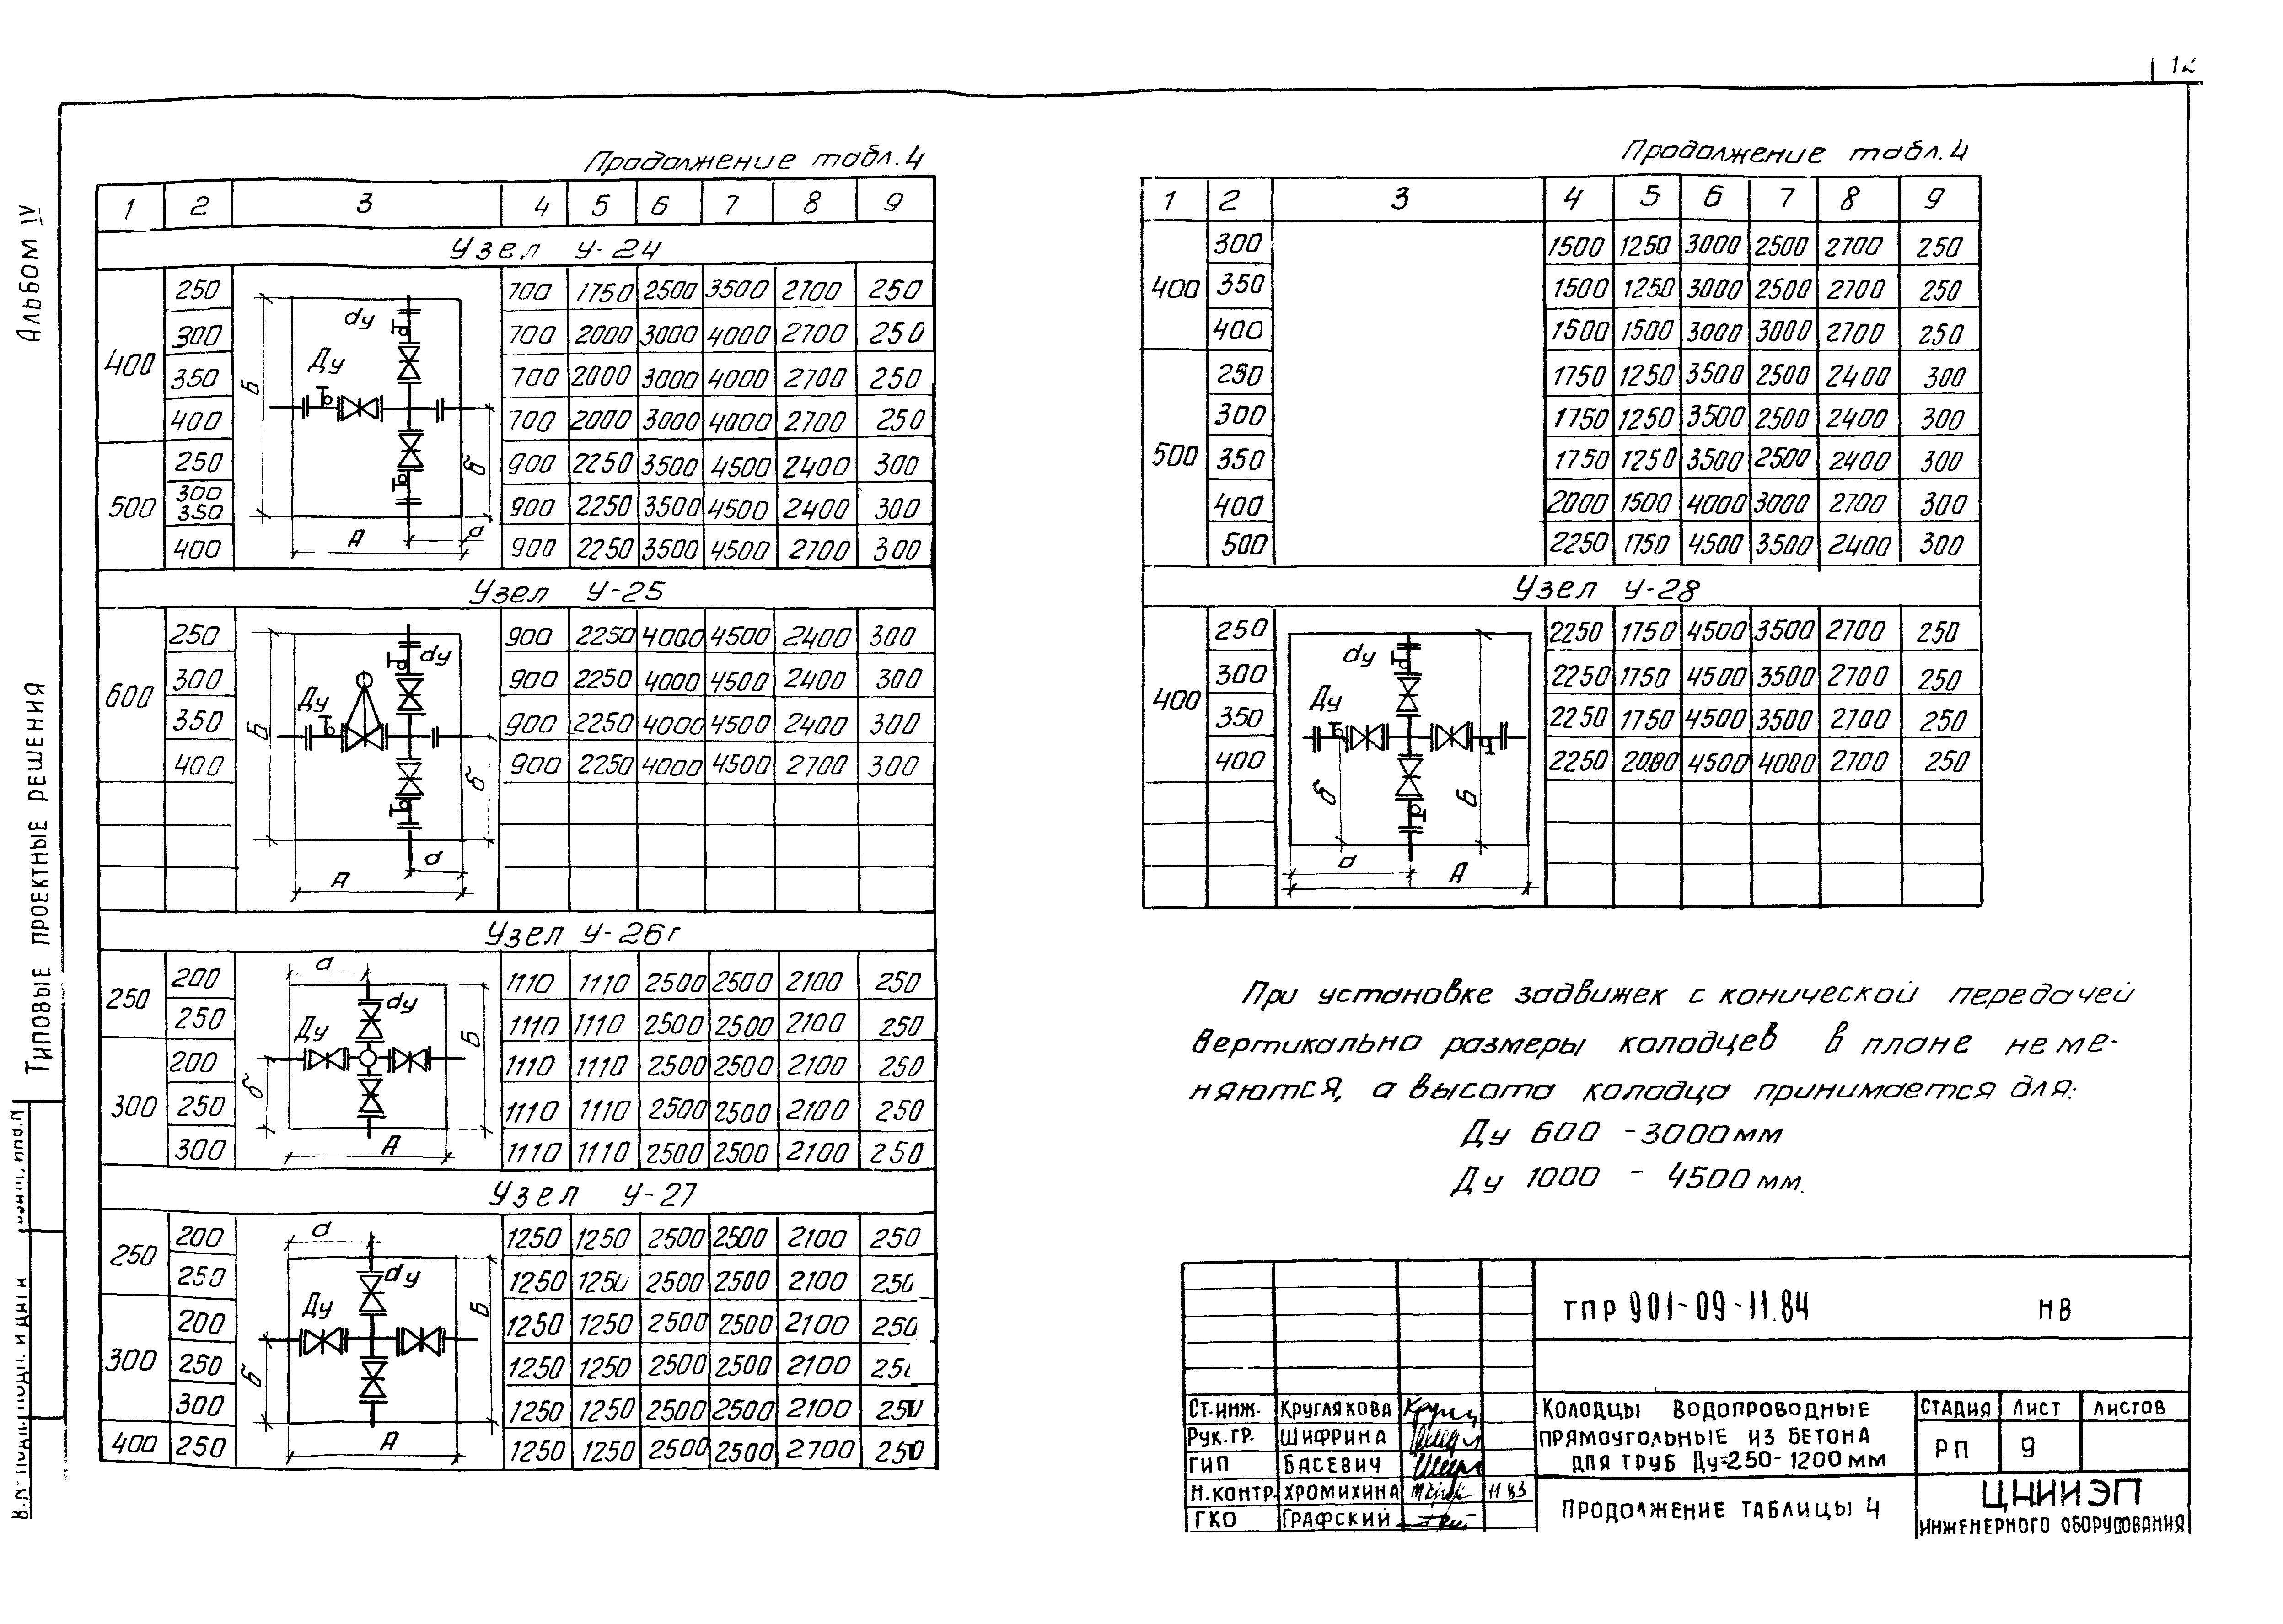 12
Альбом IV
Типовые проектные решения
Продолжение табл. 4
1 2 3 4 5 6 7 8 9
Узел У-24
400 250 700 1750 2500 3500 2700 250
300 700 2000 3000 4000 2700 250
350 700 2000 3000 4000 2700 250
400 700 2000 3000 4000 2700 250
500 250 900 2250 3500 4500 2400 300
300 350 900 2250 3500 4500 2400 300
400 900 2250 3500 4500 2700 300
dу Ду Б б А а
Узел У-25
600 250 900 2250 4000 4500 2400 300
300 900 2250 4000 4500 2400 300
350 900 2250 4000 4500 2400 300
400 900 2250 4000 4500 2700 300
dу Ду Б б а А
Узел У-26г
250 200 1110 1110 2500 2500 2100 250
250 1110 1110 2500 2500 2100 250
300 200 1110 1110 2500 2500 2100 250
250 1110 1110 2500 2500 2100 250
300 1110 1110 2500 2500 2100 250
а dу Ду Б б А
Узел У-27
250 200 1250 1250 2500 2500 2100 250
250 1250 1250 2500 2500 2100 250
300 200 1250 1250 2500 2500 2100 250
250 1250 1250 2500 2500 2100 250
300 1250 1250 2500 2500 2100 250
400 250 1250 1250 2500 2500 2700 250
а dу Ду Б б А
Продолжение табл. 4
1 2 3 4 5 6 7 8 9
400 300 1500 1250 3000 2500 2700 250
350 1500 1250 3000 2500 2700 250
400 1500 1500 3000 3000 2700 250
500 250 1750 1250 3500 2500 2400 300
300 1750 1250 3500 2500 2400 300
350 1750 1250 3500 2500 2400 300
400 2000 1500 4000 3000 2700 300
500 2250 1750 4500 3500 2400 300
Узел У-28
400 250 2250 1750 4500 3500 2700 250
300 2250 1750 4500 3500 2700 250
350 2250 1750 4500 3500 2700 250
400 2250 2000 4500 4000 2700 250
dу Ду б Б а А
При установке задвижек с конической передачей
вертикально размеры колодцев в плане не ме-
няются, а высота колодца принимается для:
Ду 600 - 3000мм
Ду 1000 - 4500мм.
ТПР 901-09-11.84 НВ
Ст.инж. Круглякова
Рук.гр. Шифрина
ГИП Басевич
Н.контр. Хромихина 11 83
ГКО Графский
Колодцы водопроводные
прямоугольные из бетона
для труб Ду=250-1200мм
Стадия Лист Листов
РП 9
Продолжение таблицы 4
ЦНИИЭП
инженерного оборудования